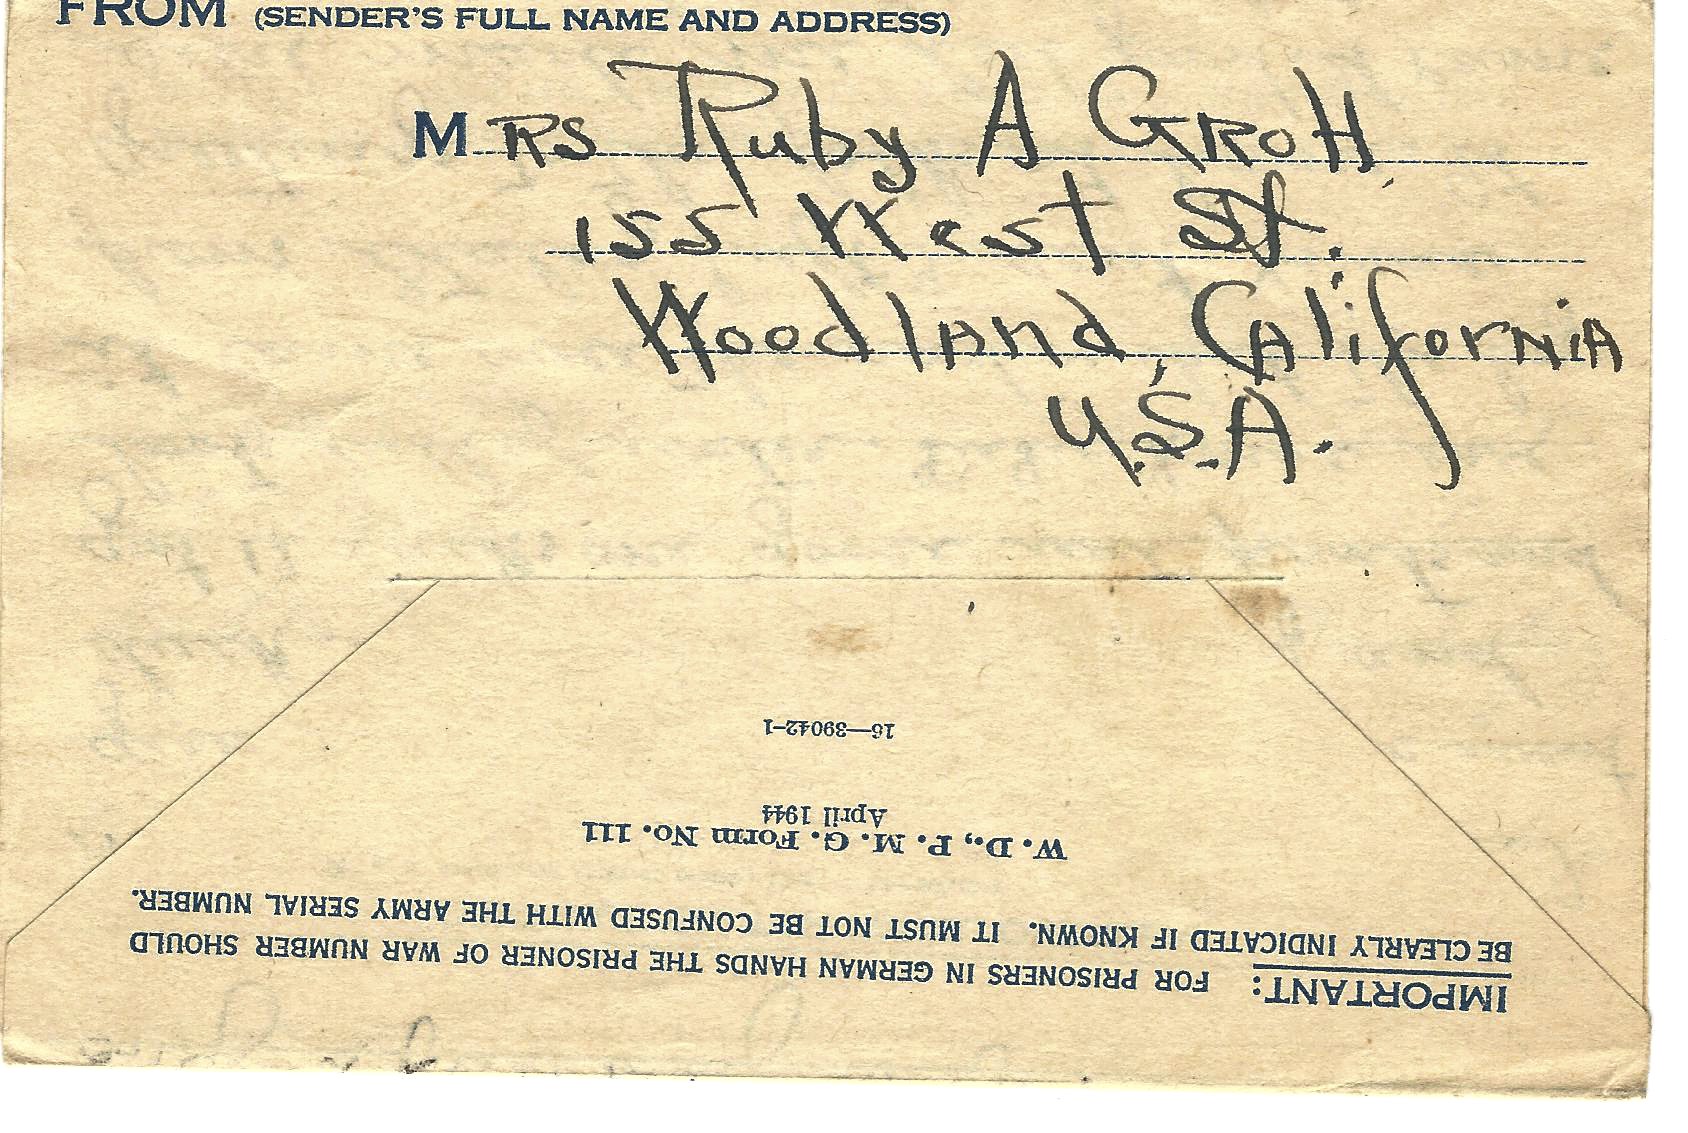 FROM (SENDER'S FULL NAME AND ADDRESS)
MRS Ruby A GROH,
155 West St.
Woodland, California
U.S.A.
16—39042-1
W. D., P. M. G. Form No. 111
April 1944
IMPORTANT: FOR PRISONERS IN GERMAN HANDS THE PRISONER OF WAR NUMBER SHOULD
BE CLEARLY INDICATED IF KNOWN. IT MUST NOT BE CONFUSED WITH THE ARMY SERIAL NUMBER.